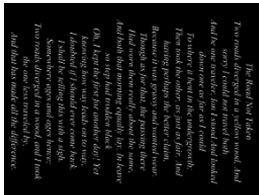 The Road Not Taken
Two roads diverged in a yellow wood, And
sorry I could not travel both
And be one traveler, long I stood And looked
down one as far as I could
To where it bent in the undergrowth;
Then took the other, as just as fair, And
having perhaps the better claim,
Because it was grassy and wanted wear,
Though as for that, the passing there
Had worn them really about the same,
And both that morning equally lay. In leaves
no step had trodden black
Oh, I kept the first for another day! Yet
knowing how way leads on to way,
I doubted if I should ever come back.
I shall be telling this with a sigh
Somewhere ages and ages hence:
Two roads diverged in a wood, and I took
the one less traveled by,
And that has made all the difference.